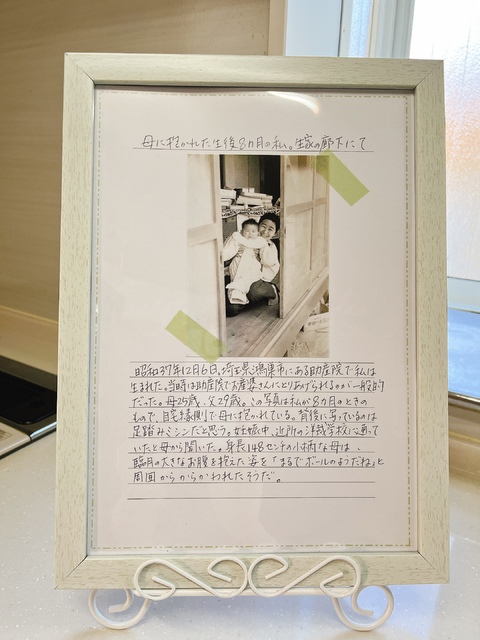 母に抱かれた生後8カ月の私。生家の廊下にて
昭和37年12月6日、埼玉県鴻巣市にある助産院で私は
生まれた。当時は助産院でお産婆さんにとりあげられるのが一般的
だった。母25歳、父29歳。この写真は私が8カ月のときの
もので、自宅縁側で母に抱かれている。背後に写っているのは
足踏みミシンだと思う。妊娠中、近所の洋裁学校に通って
いたと母から聞いた。身長148センチの小柄な母は、
臨月の大きなお腹を抱えた姿を「まるでボールのようだね」と
周囲からからかわれたそうだ。